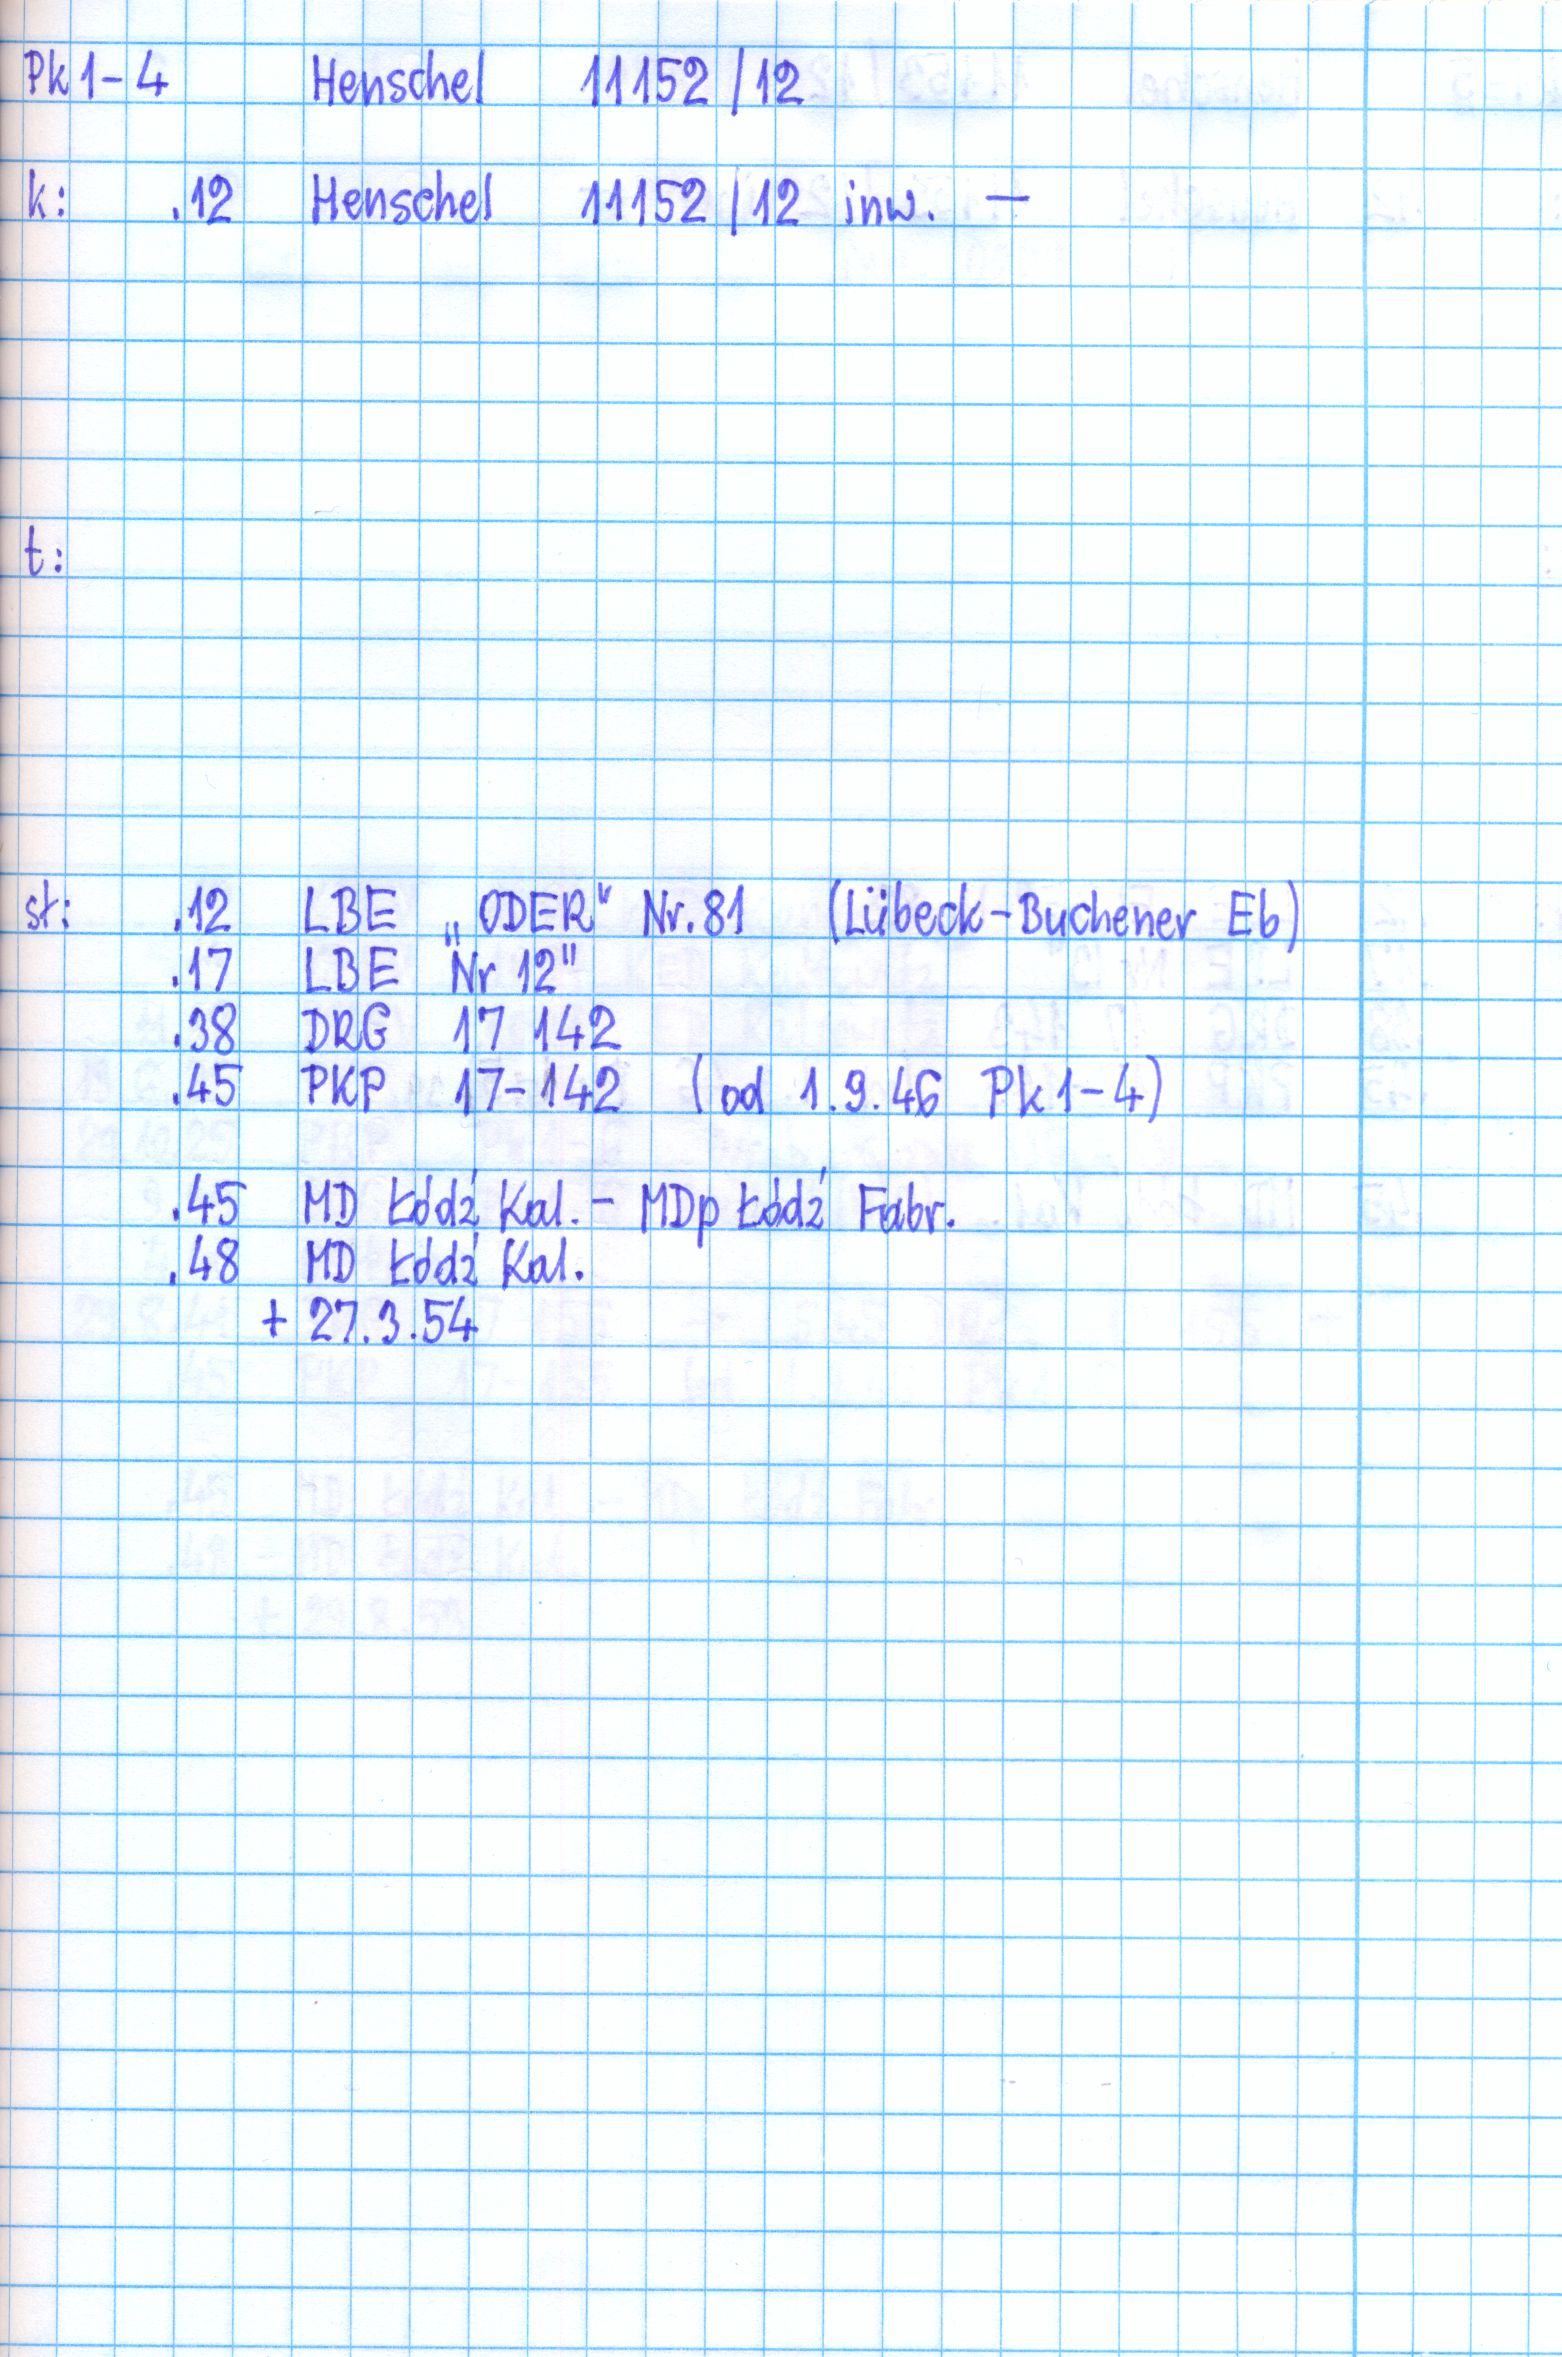 Pk1-4 Henschel 11152/12
k: .12 Henschel 11152/12 inw. —
t:
st: .12 LBE „ODER" Nr.81 (Lübeck-Buchener Eb)
.17 LBE Nr 12"
.38 DRG 17 142
.45 PKP 17-142 (od 1.9.46 Pk1-4)
.45 MD Łódź Kal. - MDp Łódź Fabr.
.48 MD Łódź Kal.
+ 27.3.54